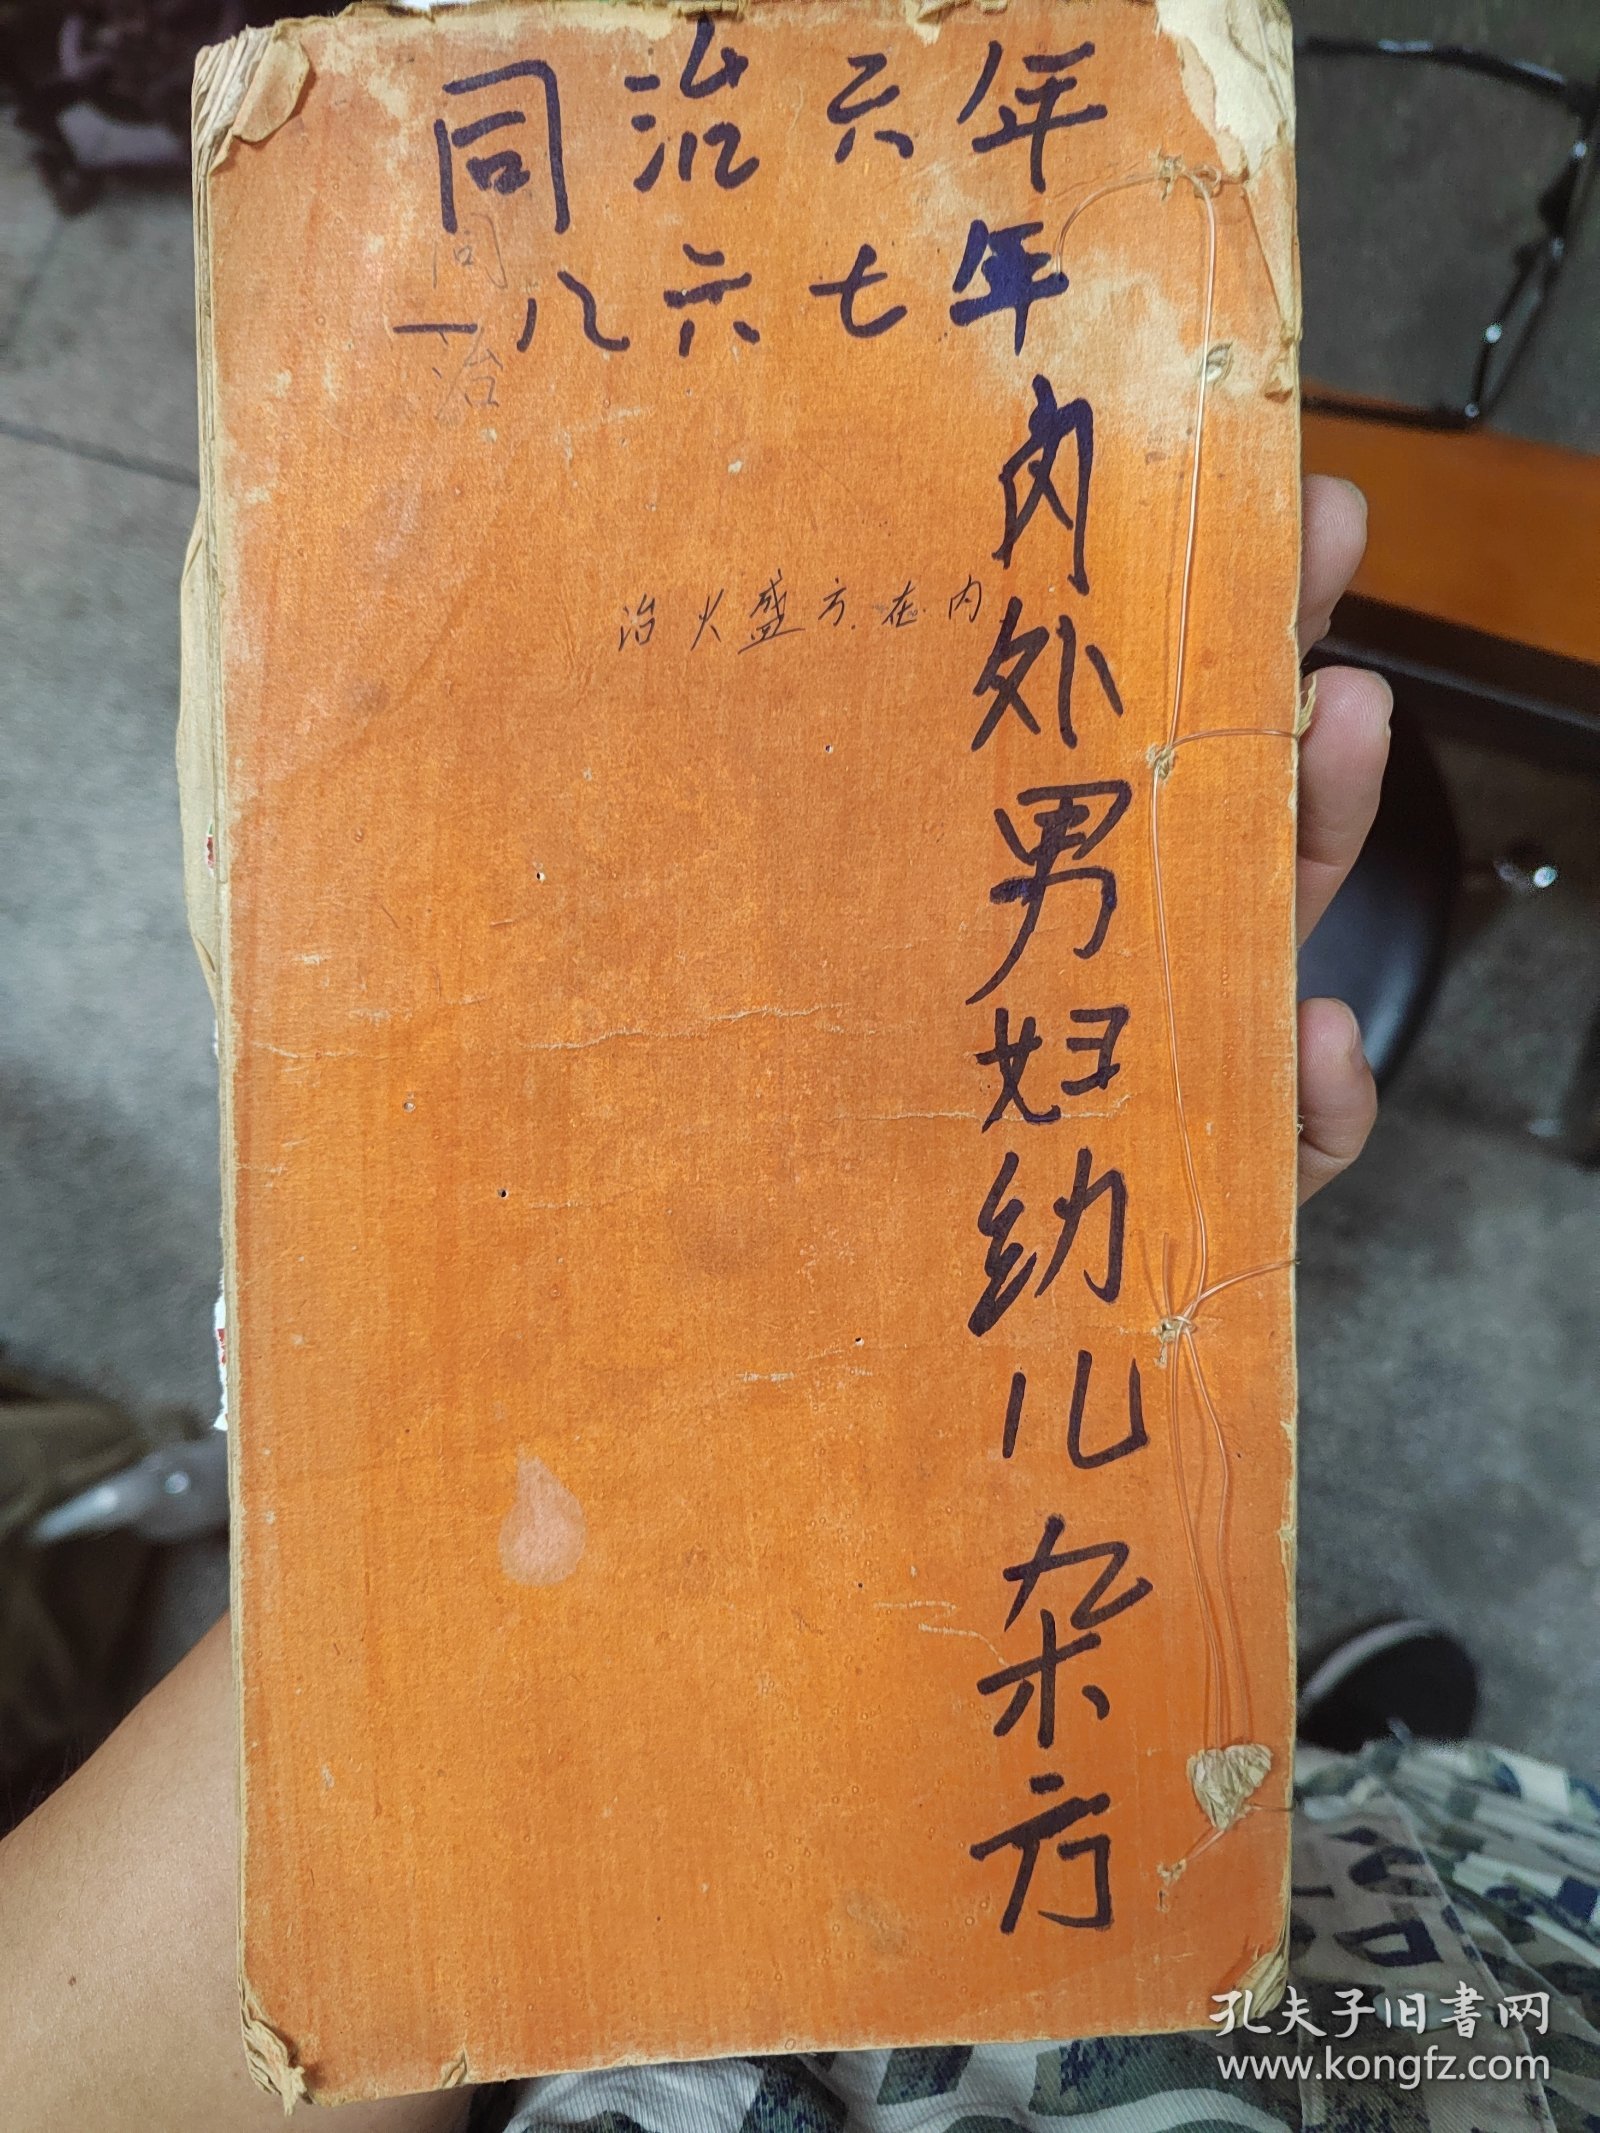 同治六年
一八六七年
同治
内外男妇幼儿杂方
治火盛方.在内
孔夫子旧書网
www.kongfz.com